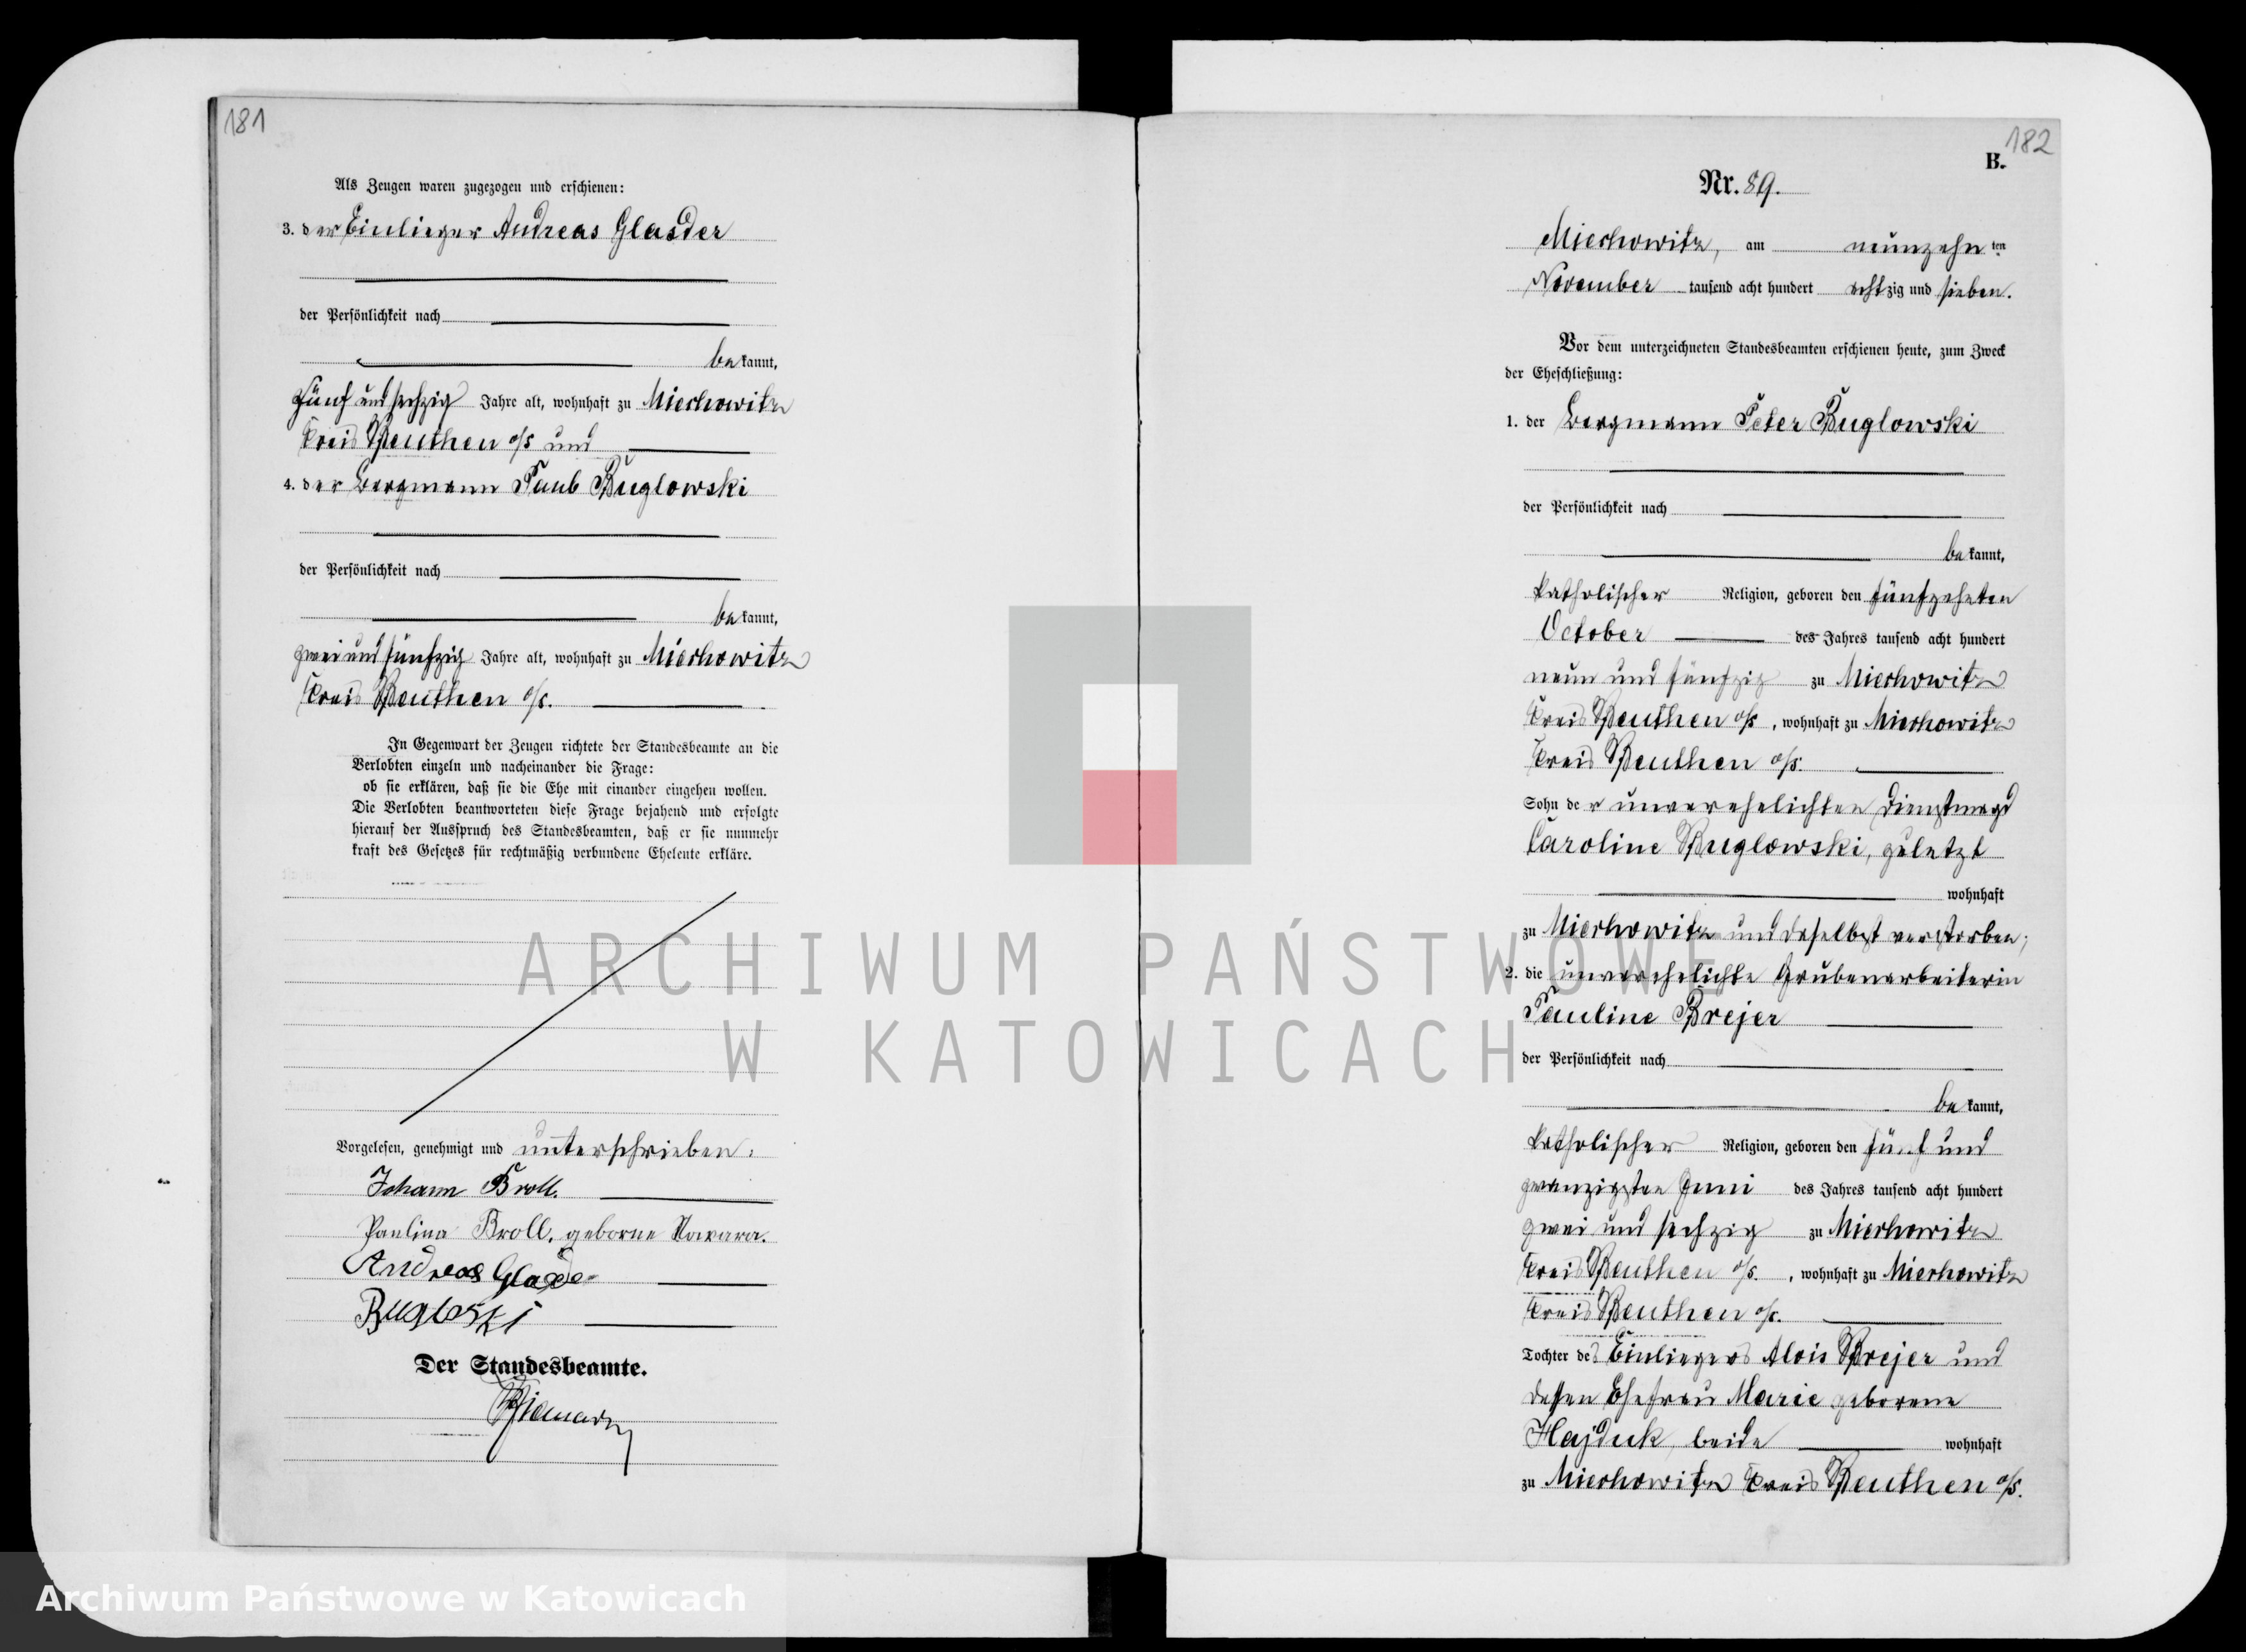 181
Als Zeugen waren zugezogen und erschienen:
3. der Einlieger Andreas Glasder
der Persönlichkeit nach
be kannt,
fünf und sechzig Jahre alt, wohnhaft zu Miechowitz
Kreis Beuthen o/s und
4. der Bergmann Paul Buglowski
der Persönlichkeit nach
be kannt,
zwei und fünfzig Jahre alt, wohnhaft zu Miechowitz
Kreis Beuthen o/s.
In Gegenwart der Zeugen richtete der Standesbeamte an die
Verlobten einzeln und nacheinander die Frage:
ob sie erklären, daß sie die Ehe mit einander eingehen wollen.
Die Verlobten beantworteten diese Frage bejahend und erfolgte
hierauf der Ausspruch des Standesbeamten, daß er sie nunmehr
kraft des Gesetzes für rechtmäßig verbundene Eheleute erkläre.
Vorgelesen, genehmigt und unterschrieben.
Johann Broll.
Paulina Broll, geborne
Andreas
Der Standesbeamte.
182
B.
Nr. 89.
Miechowitz, am neunzehn ten
November tausend acht hundert achtzig und sieben.
Vor dem unterzeichneten Standesbeamten erschienen heute, zum Zweck
der Eheschließung:
1. der Bergmann Peter Buglowski
der Persönlichkeit nach
be kannt,
katholischer Religion, geboren den fünfzehnten
October des Jahres tausend acht hundert
neun und fünfzig zu Miechowitz
Kreis Beuthen o/s, wohnhaft zu Miechowitz
Kreis Beuthen o/s.
Sohn der unverehelichten Dienstmagd
Caroline Buglowski, zuletzt
wohnhaft
zu Miechowitz und daselbst verstorben;
2. die unverehelichte Grubenarbeiterin
Pauline Brejer
der Persönlichkeit nach
be kannt,
katholischer Religion, geboren den fünf und
zwanzigsten Juni des Jahres tausend acht hundert
zwei und sechzig zu Miechowitz
Kreis Beuthen o/s. , wohnhaft zu Miechowitz
Kreis Beuthen o/s.
Tochter des Einliegers Alois Brejer und
dessen Ehefrau Marie geborene
Hajduk, beide wohnhaft
zu Miechowitz Kreis Beuthen o/s.
ARCHIWUM PAŃSTWOWE
W KATOWICACH
Archiwum Państwowe w Katowicach